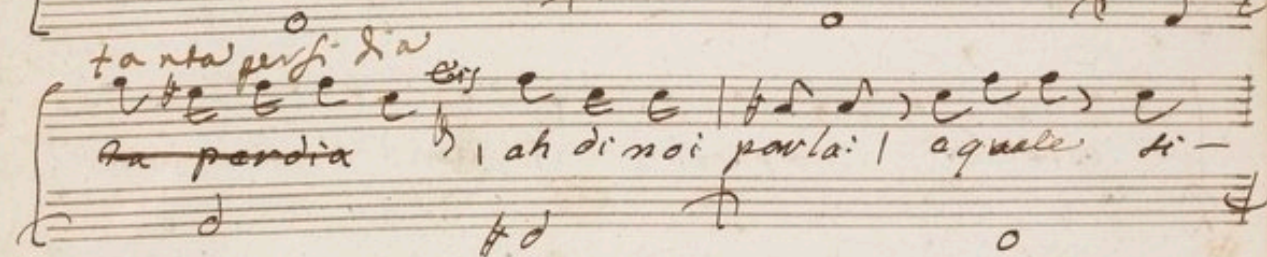 tanta perfidia
Eris
ta perdia | ah di noi parla: | e quale si -